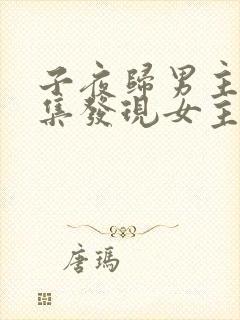 子夜歸男主
集發現女主
唐瑪